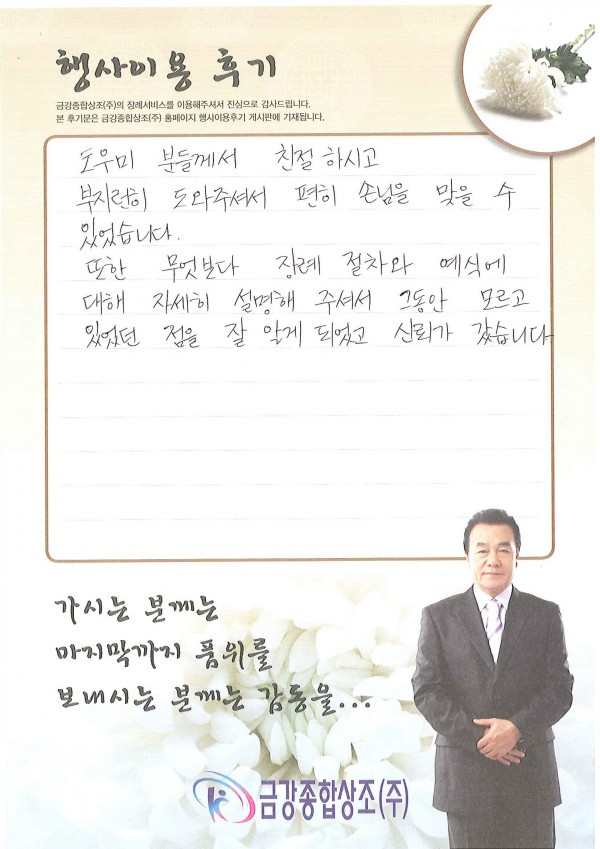 행사이용 후기
금강종합상조(주)의 장례서비스를 이용해주셔서 진심으로 감사드립니다.
본 후기문은 금강종합상조(주) 홈페이지 행사이용후기 게시판에 기재됩니다.
도우미 분들께서 친절 하시고
부지런히 도와주셔서 편히 손님을 맞을 수
있었습니다.
또한 무엇보다 장례 절차와 예식에
대해 자세히 설명해 주셔서 그동안 모르고
있었던 점을 잘 알게 되었고 신뢰가 갔습니다
가시는 분께는
마지막까지 품위를
보내시는 분께는 감동을...
금강종합상조(주)